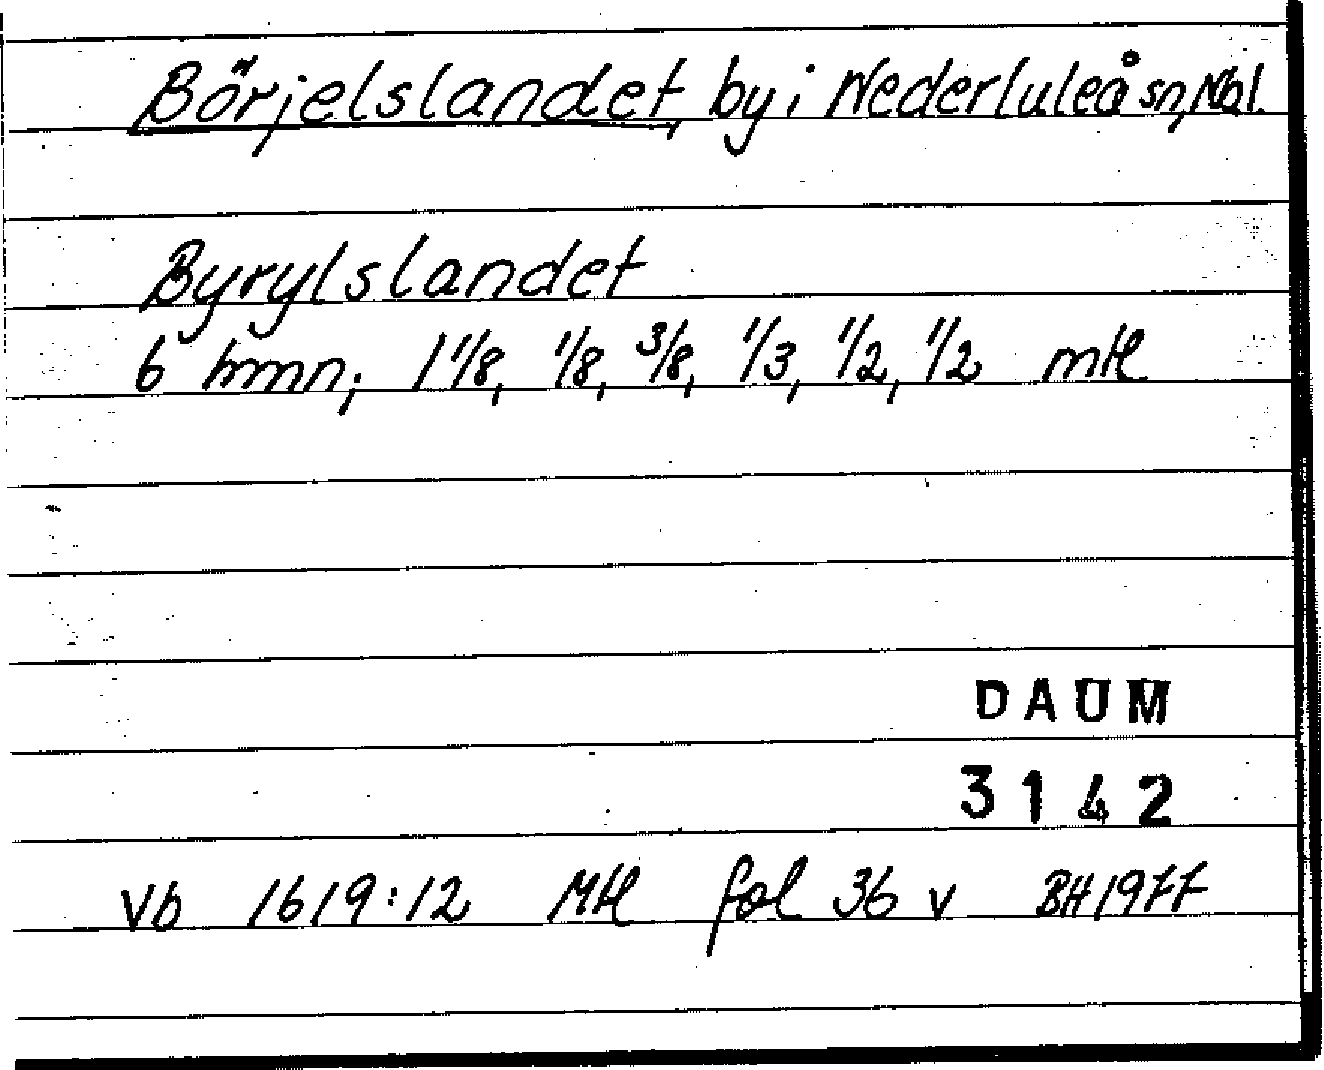 Börjelslandet, by i Nederluleå sn, Nbl.
Byrylslandet
6 hmn; 1 1/8, 1/8, 3/8, 1/3, 1/2, 1/2 mtl
DAUM
3142
Vb 1619:12 Mtl fol 36 v BH 1977